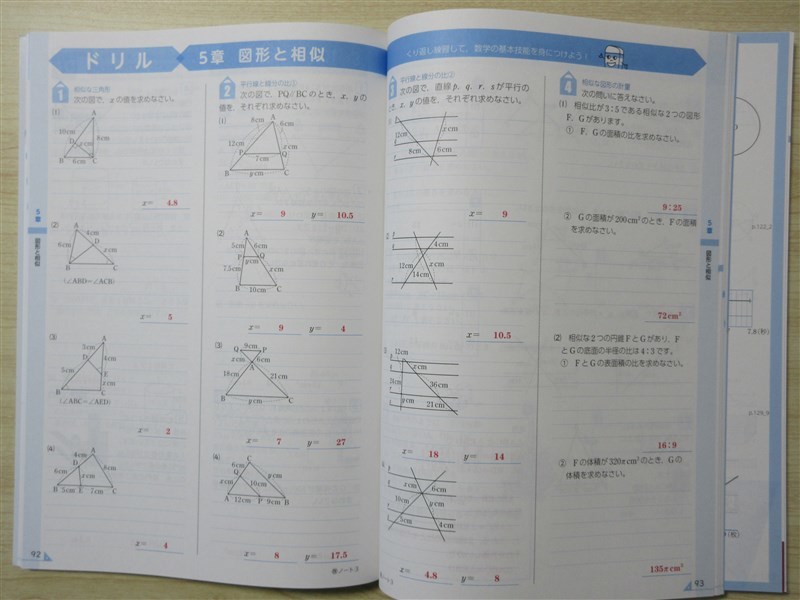 ドリル 5章 図形と相似
1 相似な三角形
次の図で、xの値を求めなさい。
(1)
A
10cm
8cm
D
x cm
B 6cm C
x= 4.8
(2)
A
4cm
6cm
D
x cm
B C
(∠ABD=∠ACB)
x= 5
(3)
A
5cm
4cm
D
5cm
E
x cm
B C
(∠ABC=∠AED)
x= 2
(4)
A
4cm
D
6cm
x cm
8cm
B 5cm E 7cm C
x= 4
2 平行線と線分の比①
次の図で、PQ∥BCのとき、x, yの
値を、それぞれ求めなさい。
(1)
8cm A 6cm
12cm
x cm
P 7cm Q
B y cm C
x= 9 y= 10.5
(2)
A
5cm 6cm
P y cm Q
7.5cm x cm
B 10cm C
x= 9 y= 4
(3)
Q 9cm P
x cm 6cm
A
18cm 21cm
B y cm C
x= 7 y= 27
(4)
C
6cm
Q
y cm
x cm 10cm
A 12cm P 9cm B
x= 8 y= 17.5
92
5章 図形と相似
くり返し練習して、数学の基本技能を身につけよう!
3 平行線と線分の比②
次の図で、直線p, q, r, sが平行の
とき、x, yの値を、それぞれ求めなさい。
12cm
x cm
8cm 6cm
x= 9
4cm
12cm x cm
14cm
x= 10.5
12cm
x cm
36cm
21cm
y cm
x= 18 y= 14
x cm 6cm
10cm y cm
5cm 4cm
x= 4.8 y= 8
4 相似な図形の計量
次の問いに答えなさい。
(1) 相似比が3:5である相似な2つの図形
F, Gがあります。
① F, Gの面積の比を求めなさい。
9:25
② Gの面積が200cm²のとき、Fの面積
を求めなさい。
72cm²
(2) 相似な2つの円錐FとGがあり、F
とGの底面の半径の比は4:3です。
① FとGの表面積の比を求めなさい。
16:9
② Fの体積が320πcm³のとき、Gの
体積を求めなさい。
135πcm³
93
5章 図形と相似